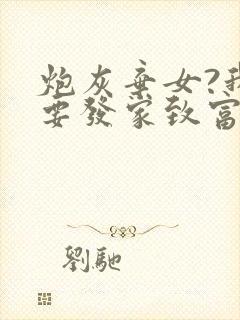 炮灰棄女?我
要發家致富
劉馳